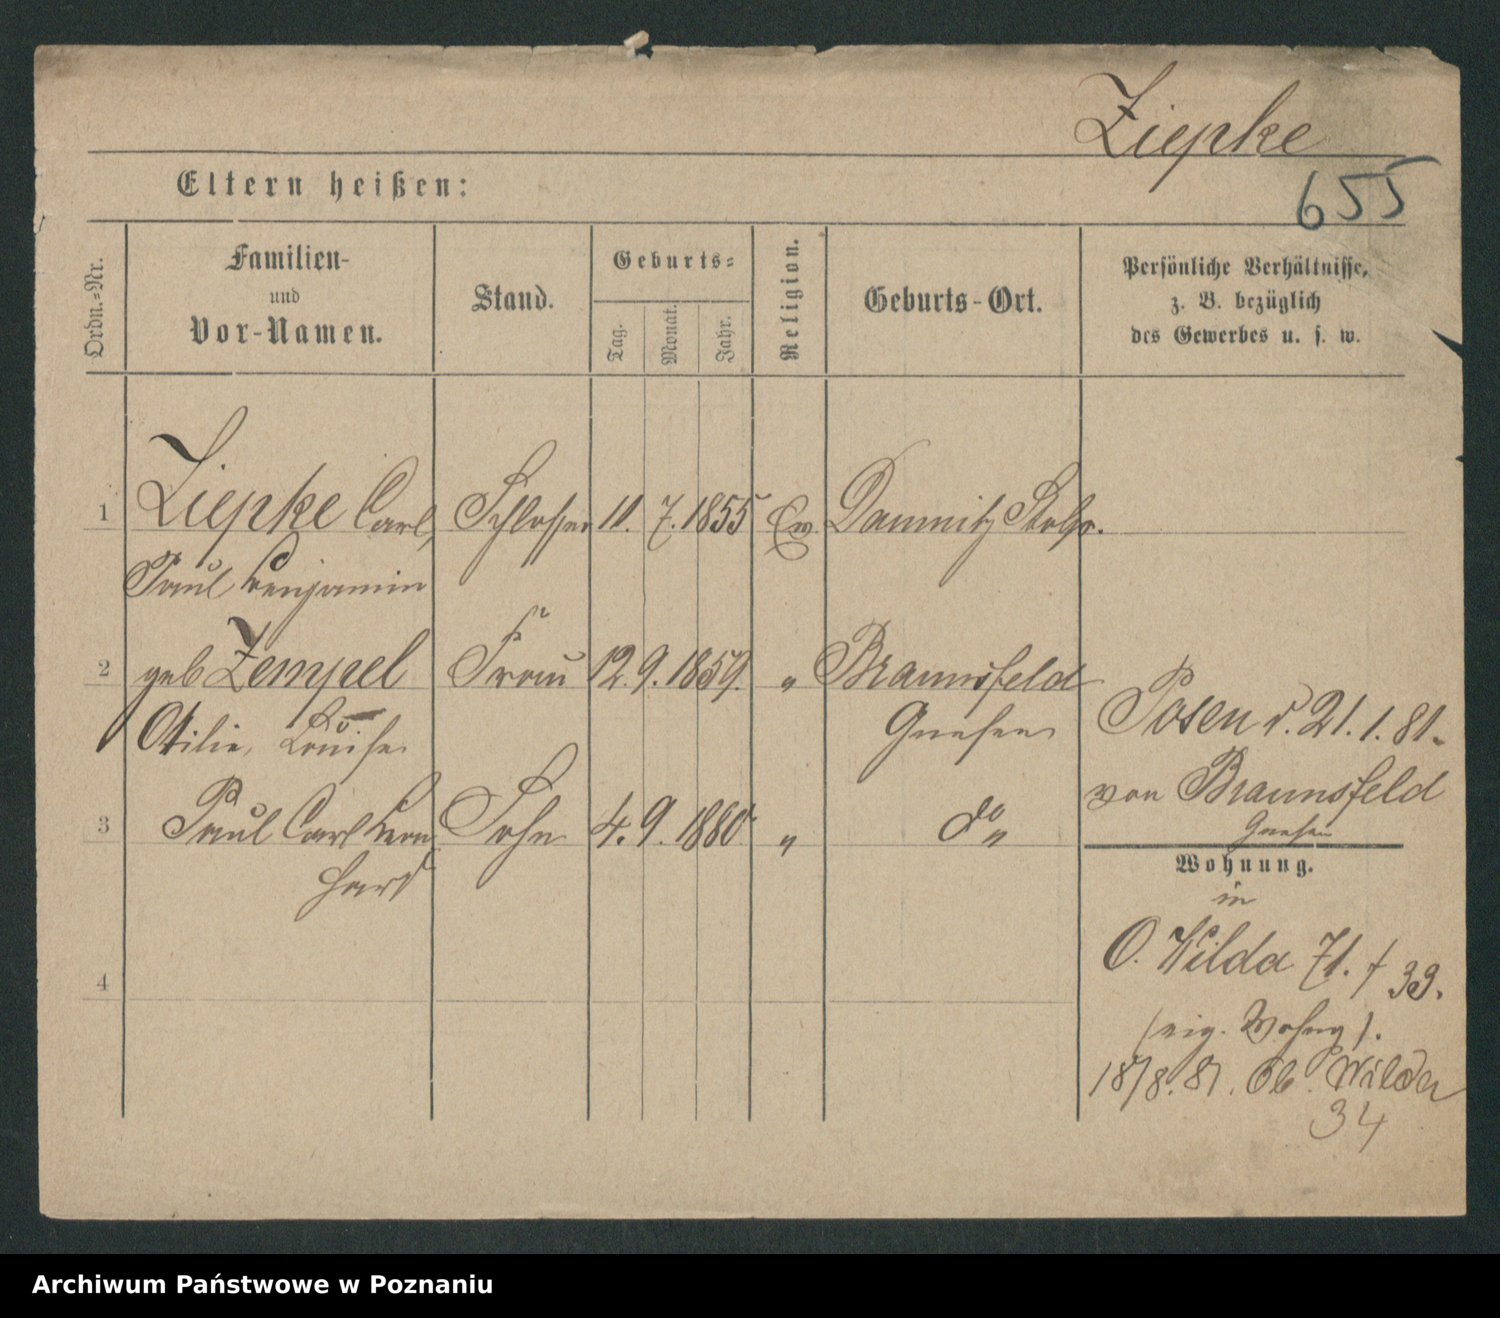 Ziepke
655
Eltern heißen:
Ordn.-Nr.
Familien-
und
Vor-Namen.
Stand.
Geburts-
Tag.
Monat.
Jahr.
Religion.
Geburts-Ort.
Persönliche Verhältnisse,
z. B. bezüglich
des Gewerbes u. s. w.
1 Ziepke Carl, Schlosser 11. 7. 1855 Ev. Damnitz Stolp.
Paul Benjamin
2 geb Zempel Frau 12. 9. 1859. " Braunsfeld
Otilie, Louise
Gnesen
Posen d. 21. 1. 81.
von Braunsfeld
Gnesen
3 Paul Carl Leon Sohn 4. 9. 1880 " do "
hard
Wohnung.
in
O. Wilda 71. f 39.
(eig. Wohng).
4
18/8. 81. Ob. Wilda
34
Archiwum Państwowe w Poznaniu